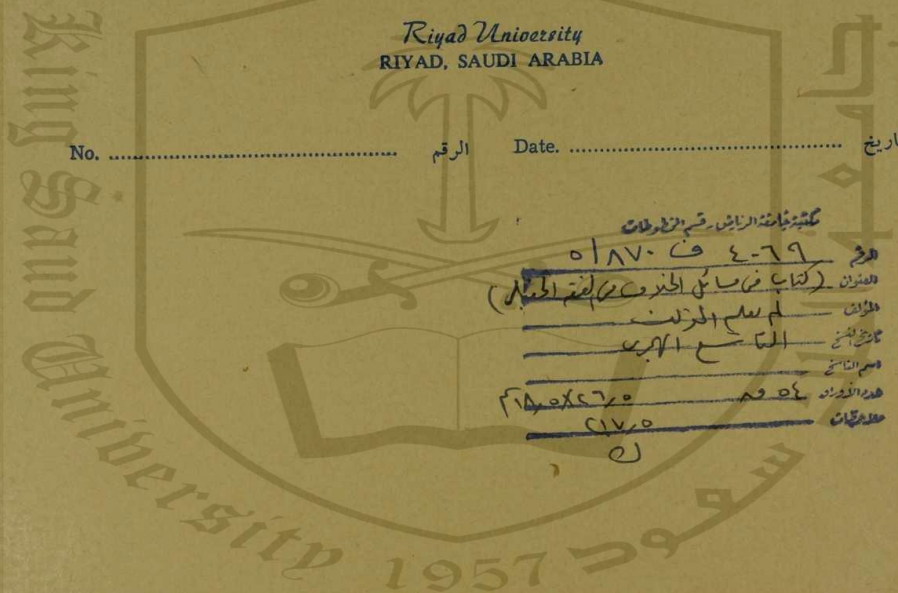 Riyad University
RIYAD, SAUDI ARABIA
No. .......... الرقم Date. .......... اريخ
مكتبة جامعة الرياض - قسم المخطوطات
الرقم ٤٠٦٩ ف ٥/٨٧٠
العنوان (كتاب في مسائل الخلاف في الفقه الحنبلي)
المؤلف لم يعلم المؤلف
تاريخ النسخ التاسع الهجري
اسم الناسخ
عدد الأوراق ٥٤ و ٢٦٫٥×١٨٫٥ م
ملاحظات ٢١٧٫٥
ك
King Saud University 1957
سعود